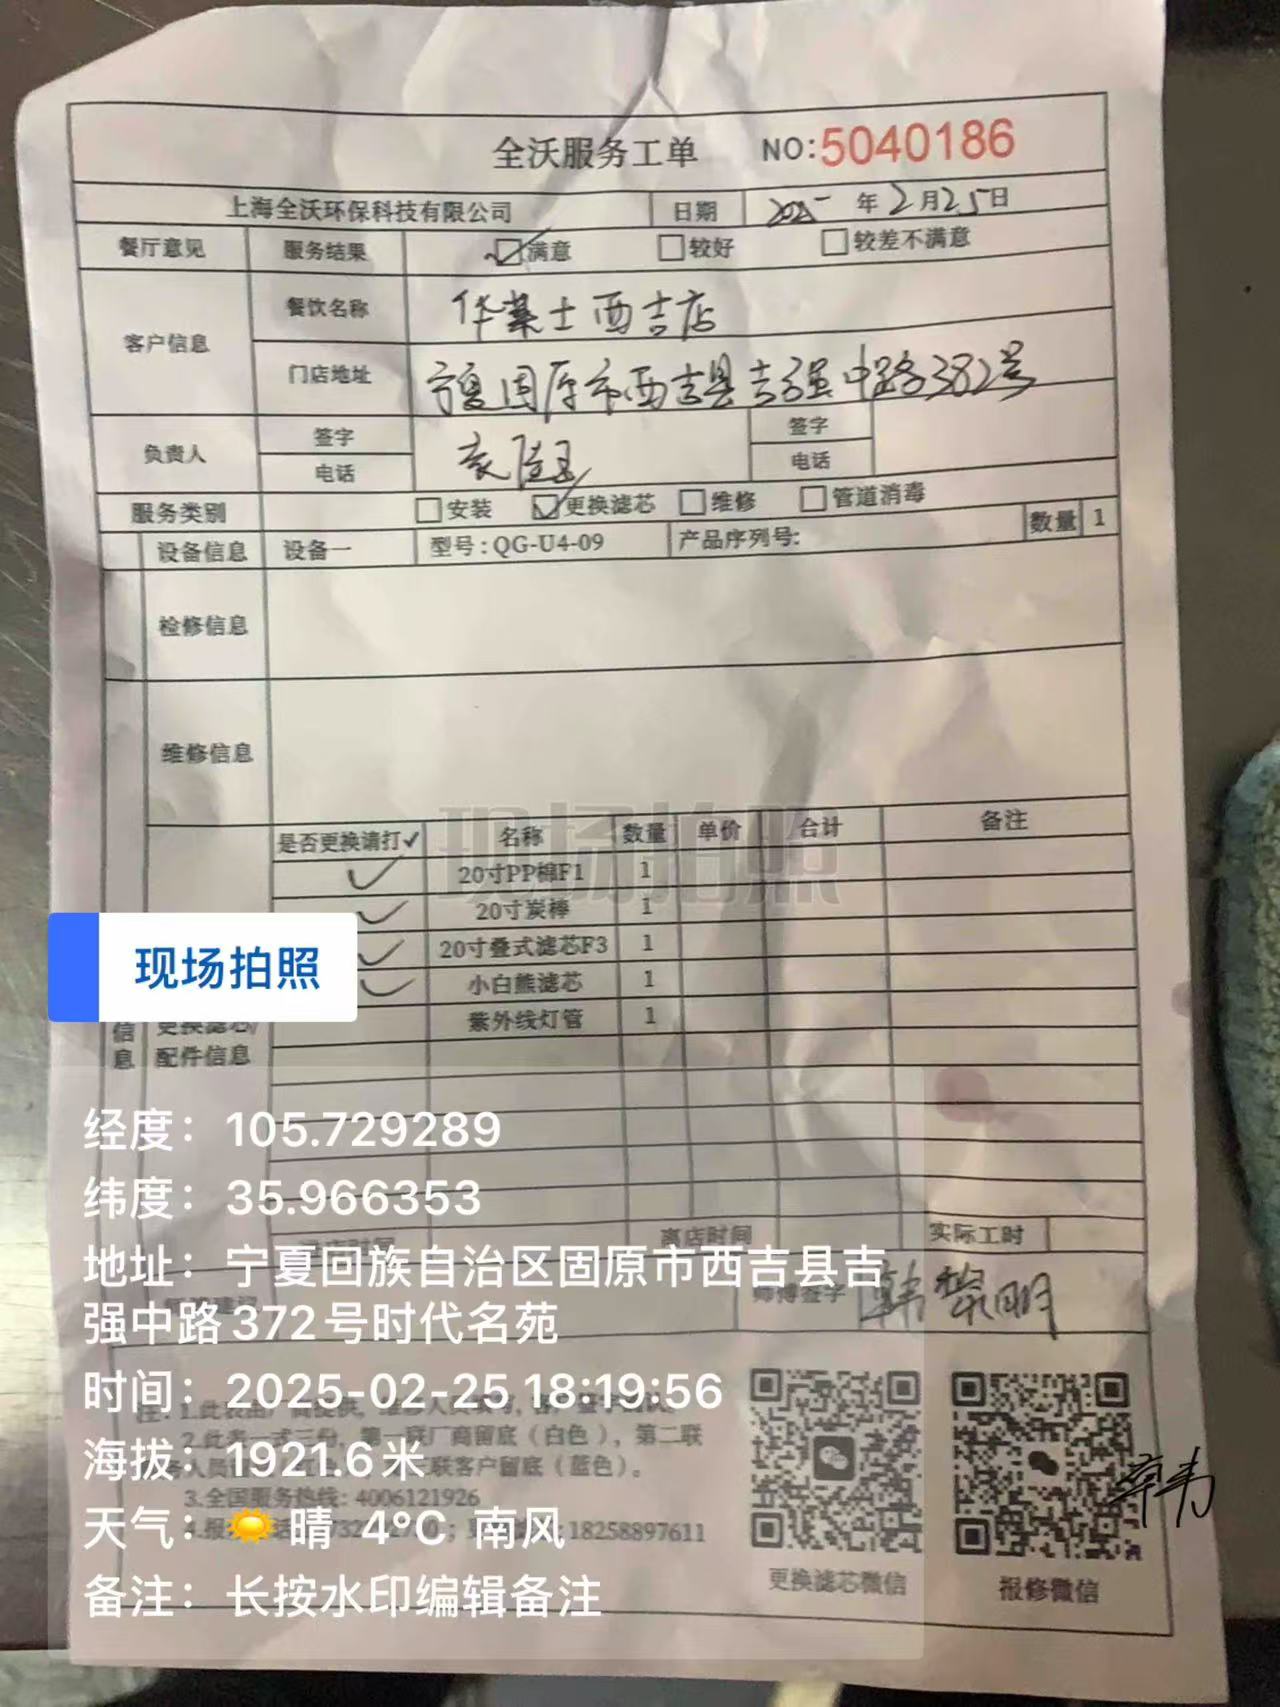 全沃服务工单 NO:5040186
上海全沃环保科技有限公司 日期 2025年2月25日
餐厅意见 服务结果 满意 较好 较差不满意
客户信息 餐饮名称 华莱士西吉店
门店地址 宁夏固原市西吉县吉强中路382号
负责人 签字 签字
电话 电话
服务类别 安装 更换滤芯 维修 管道消毒
设备信息 设备一 型号:QG-U4-09 产品序列号: 数量 1
检修信息
维修信息
是否更换请打✓ 名称 数量 单价 合计 备注
✓ 20寸PP棉F1 1
✓ 20寸炭棒 1
✓ 20寸叠式滤芯F3 1
✓ 小白熊滤芯 1
紫外线灯管 1
信息 更换滤芯/
配件信息
现场拍照
现场拍照
离店时间 实际工时
师傅签字 韩黎明
经度：105.729289
纬度：35.966353
地址：宁夏回族自治区固原市西吉县吉
强中路372号时代名苑
时间：2025-02-25 18:19:56
海拔：1921.6米
天气：☀️晴 4°C 南风
备注：长按水印编辑备注
2.此表一式三份，第一联厂商留底（白色），第二联
联客户留底（蓝色）。
3.全国服务热线: 4006121926
18258897611
更换滤芯微信 报修微信
韩